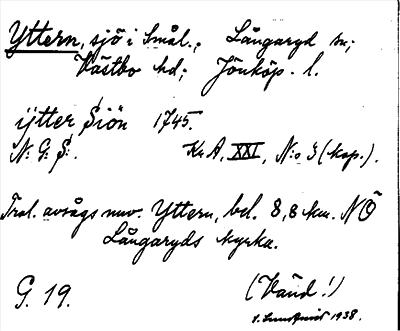 Yttern, sjö i Smål.; Långaryd sn;
Västbo hd; Jönköp. l.
ijtter Siön 1745.
N: G: S:. Kr A, XXI, N:o 3 (kop.).
Trol. avsågs nuv. Yttern, bel. 8,8 km. NÖ
Långaryds kyrka.
G. 19. (Vänd!)
1938.